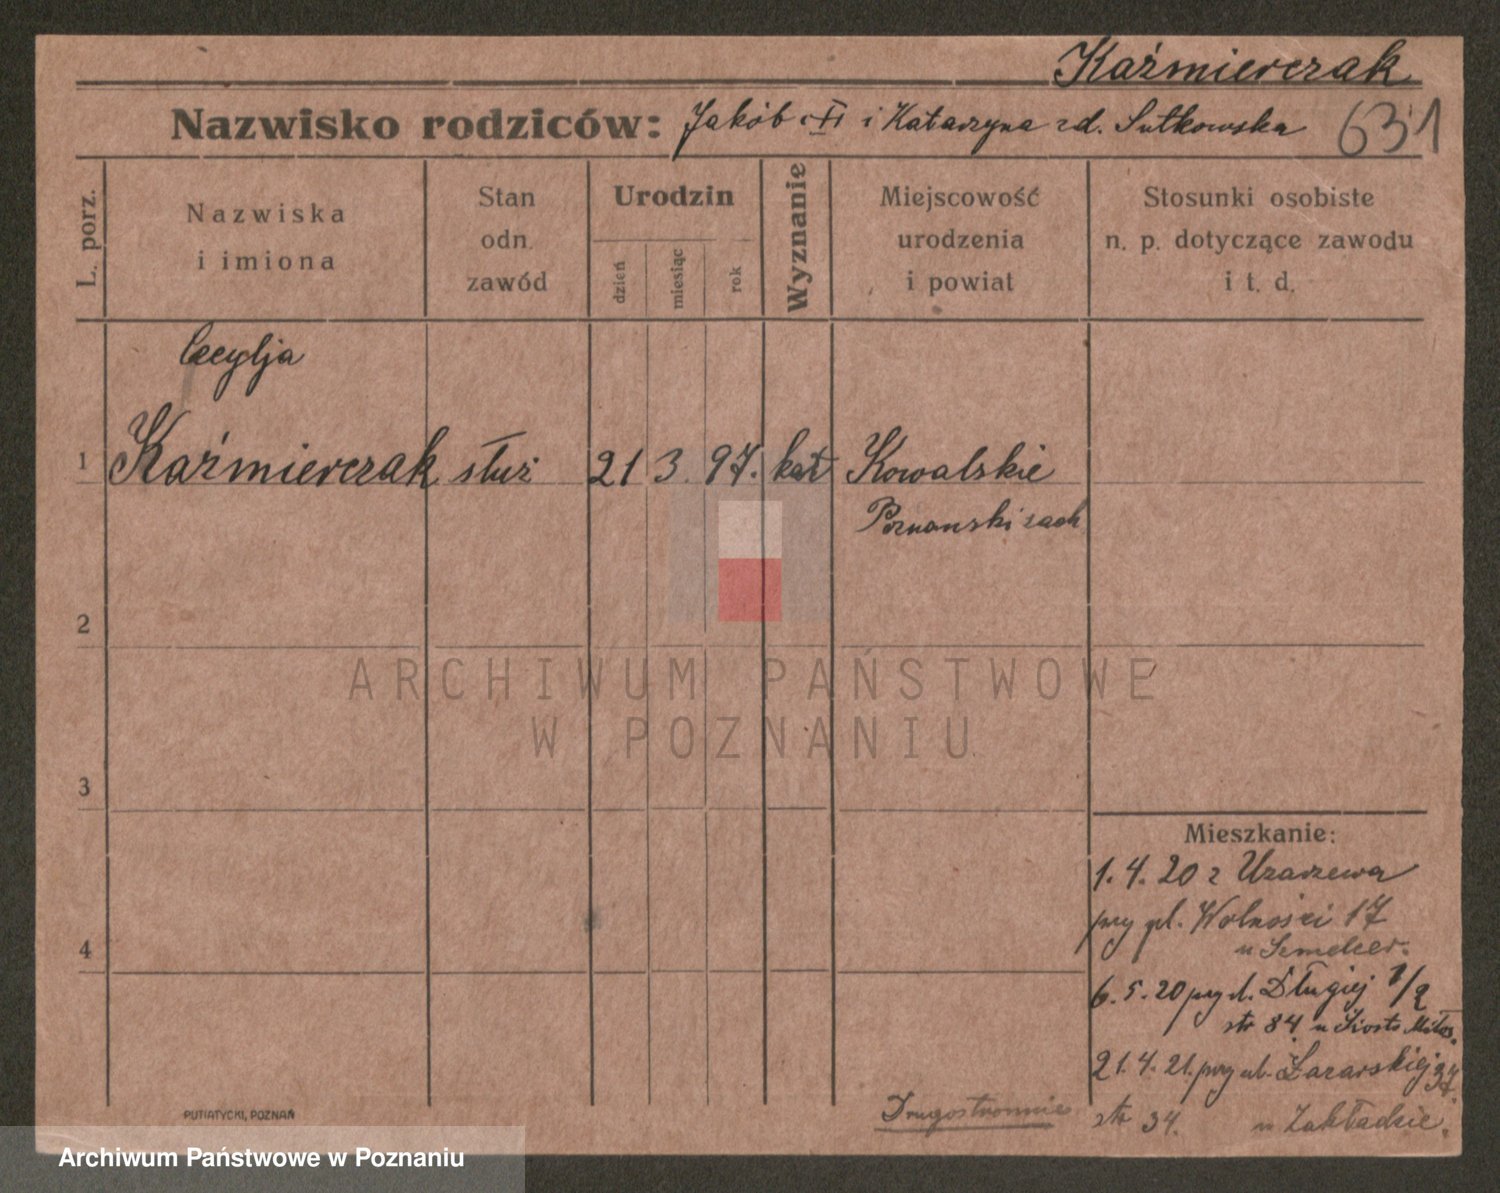 Kaźmierczak
Nazwisko rodziców: Jakób i Katarzyna zd. Sutkowska 631
L. porz.
Nazwiska
i imiona
Stan
odn.
zawód
Urodzin
dzień
miesiąc
rok
Wyznanie
Miejscowość
urodzenia
i powiat
Stosunki osobiste
n. p. dotyczące zawodu
i t. d.
Cecylja
1 Kaźmierczak służ 21 3. 97. kat Kowalskie
Poznański zach
2
ARCHIWUM PAŃSTWOWE
W POZNANIU
3
Mieszkanie:
1. 4. 20 z Uzarzewa
przy pl. Wolności 17
4
6. 5. 20 przy ul. Długiej 1/2
str 84 u Siostr Miłos.
21. 4. 21. przy ul. Łazarskiej
str 34. w Zakładzie.
Drugostronnie
PUTIATYCKI, POZNAŃ
Archiwum Państwowe w Poznaniu